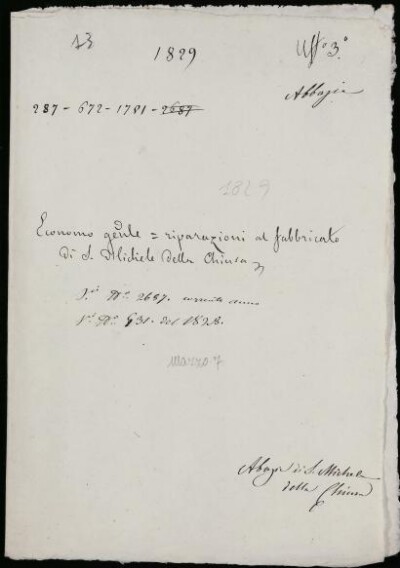 13
1829
Uff.º 3.º
Abbazia
287 - 672 - 1781 - 2687
1829
Economo gen.le = riparazioni al fabbricato
di S. Michele della Chiusa
N.º 2687. corrente anno
N.º 931. del 1828.
marzo 7
Abazia di S. Michele
della Chiusa